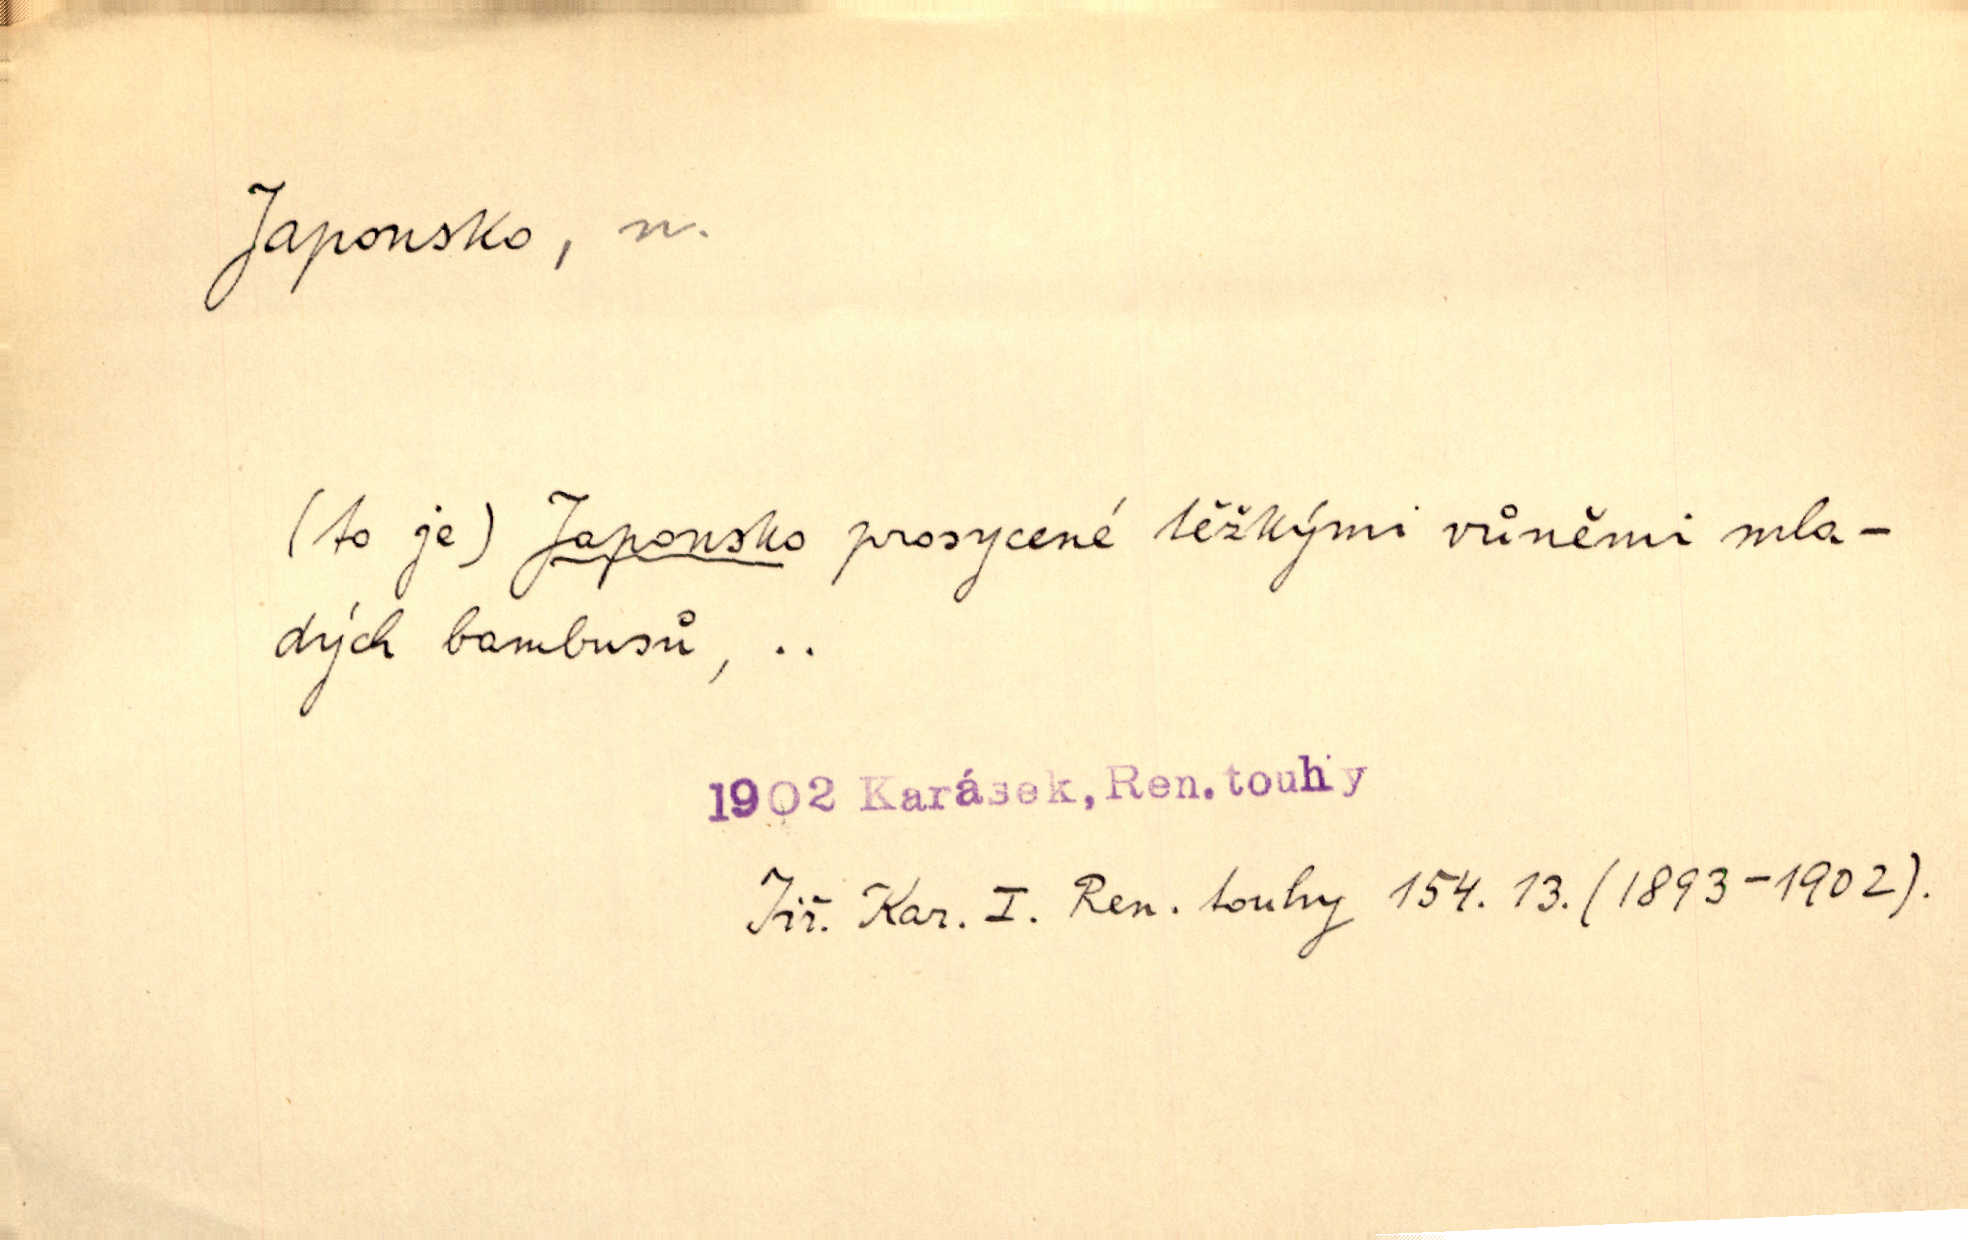 Japonsko, n.
(to je) Japonsko prosycené těžkými vůněmi mla-
dých bambusů, ..
1902 Karásek, Ren. touhy
Jiř. Kar. I. Ren. touhy 154. 13. (1893-1902).